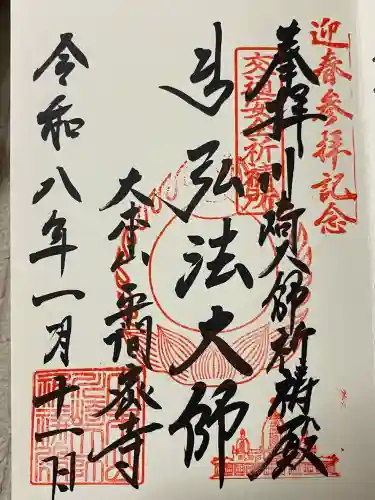 迎春参拝記念
奉拝
川崎大師祈祷殿
交通安全祈祷所
弘法大師
大本山平間寺
令和八年一月十一日